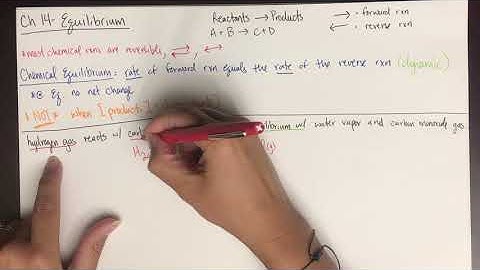 Ch 14 - Equilibrium
Reactants → Products
A + B → C + D
→ = forward rxn
← = reverse rxn
*most chemical rxns are reversible, ⇄ ↔
Chemical Equilibrium: rate of forward rxn equals the rate of the reverse rxn (dynamic)
*@ Eq. no net change
*NOT* when [products]
hydrogen gas reacts w/ w/ water vapor and carbon monoxide gas
H2 (g)